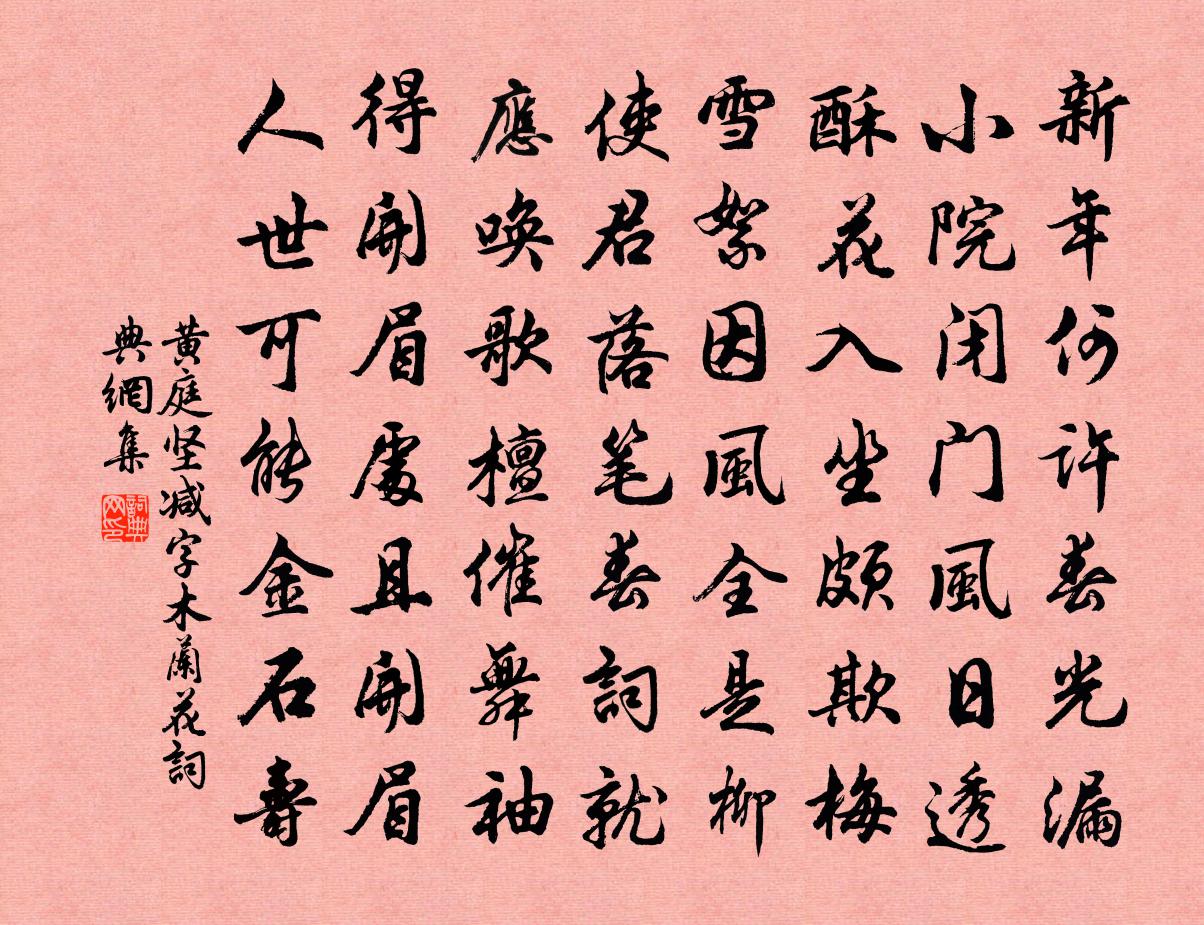 新年何許春光漏
小院闭门風日透
酥花入坐頗欺梅
雪絮因風全是柳
使君落笔春詞就
應唤歌檀催舞袖
得開眉處且開眉
人世可能金石壽
黄庭坚减字木蘭花詞
典網集
詞典网印